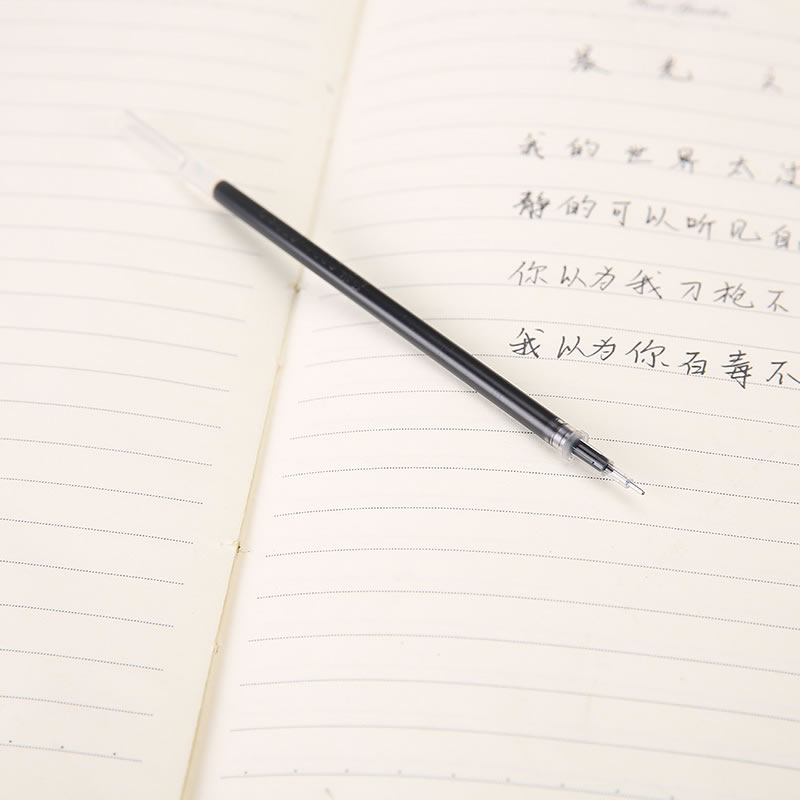 我的世界太过
静的可以听见自
你以为我刀枪不
我以为你百毒不